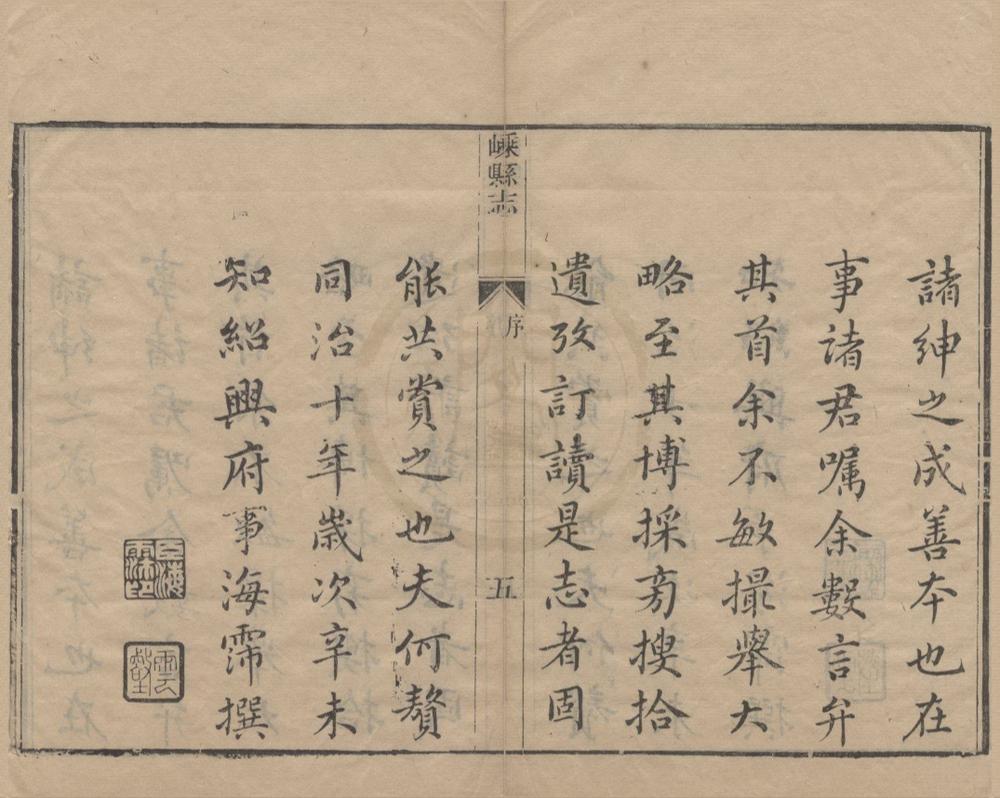 諸紳之成善本也在
事諸君嘱余數言弁
其首余不敏撮舉大
略至其博採旁搜拾
遺攷訂讀是志者固
嵊縣志
序
五
能共賞之也夫何贅
同治十年歲次辛未
知紹興府事海霈撰